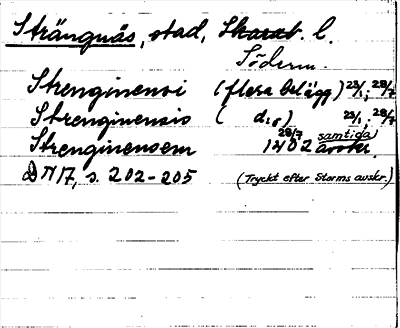 Strängnäs, stad, Skarab. l.
Söderm.
Strenginensi (flera belägg) 23/1, 28/7
Strenginensis ( d:o ) 23/1, 28/7
Strenginensem 28/7 1402 samtida avskr.
DN 17, s. 202-205 (Tryckt efter Storms avskr.)